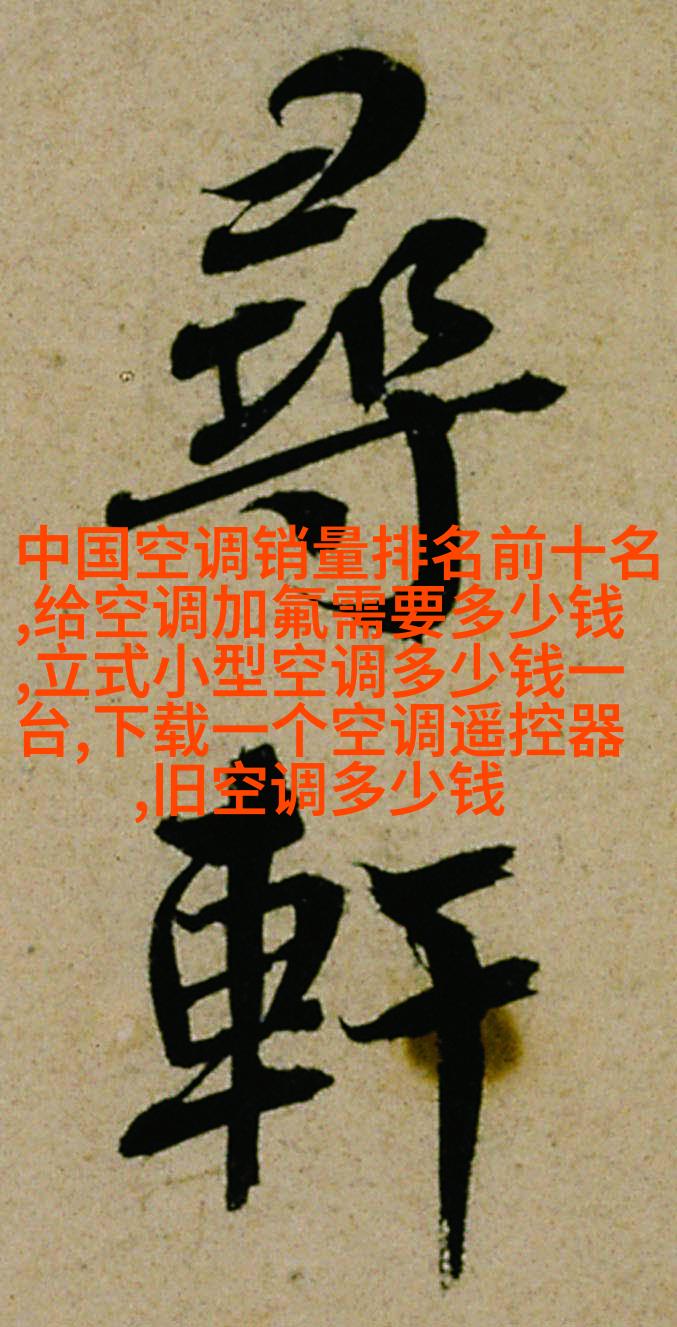 尋
軒
中国空调销量排名前十名
,给空调加氟需要多少钱
,立式小型空调多少钱一
台,下载一个空调遥控器
,旧空调多少钱